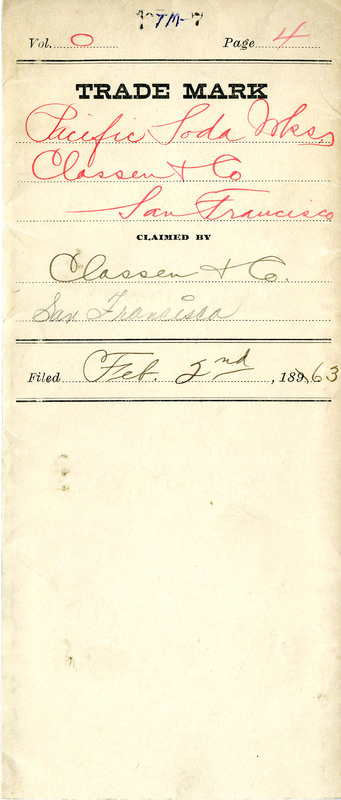 TM-7
Vol. 0 Page 4
TRADE MARK
Pacific Soda Wks.
Classen & Co
San Francisco
CLAIMED BY
Classen & Co.
San Francisco
Filed Feb. 2nd, 189 63